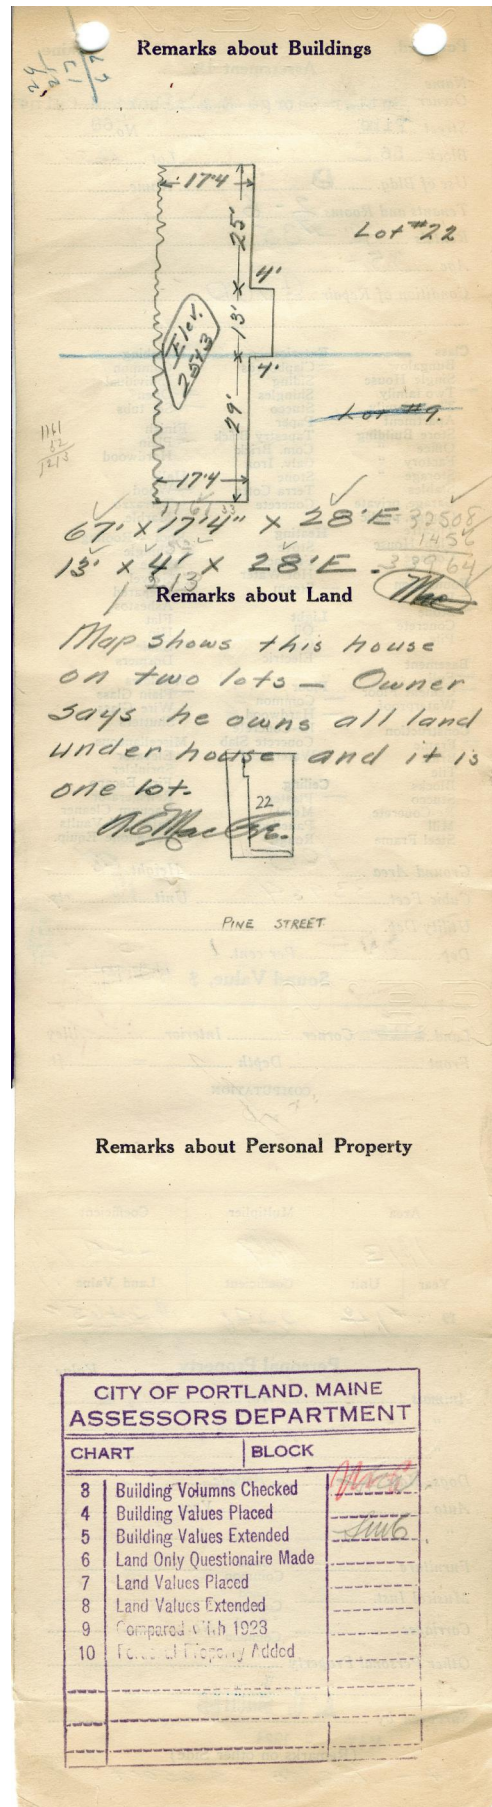 Remarks about Buildings
17'4
25'
Lot #22
4'
13'
Elev.
2513
4'
29'
Lot #9.
1161
52
1213
17'4
1161
67' x 17'4" x 28'E 32508
1456
13' x 4' x 28'E. 33964
Mac
Remarks about Land
Map shows this house
on two lots — Owner
says he owns all land
under house and it is
one lot.
22
PINE STREET
Remarks about Personal Property
CITY OF PORTLAND, MAINE
ASSESSORS DEPARTMENT
CHART BLOCK
3 Building Volumns Checked
4 Building Values Placed
5 Building Values Extended
6 Land Only Questionaire Made
7 Land Values Placed
8 Land Values Extended
9 Compared with 1923
10 Personal Property Added